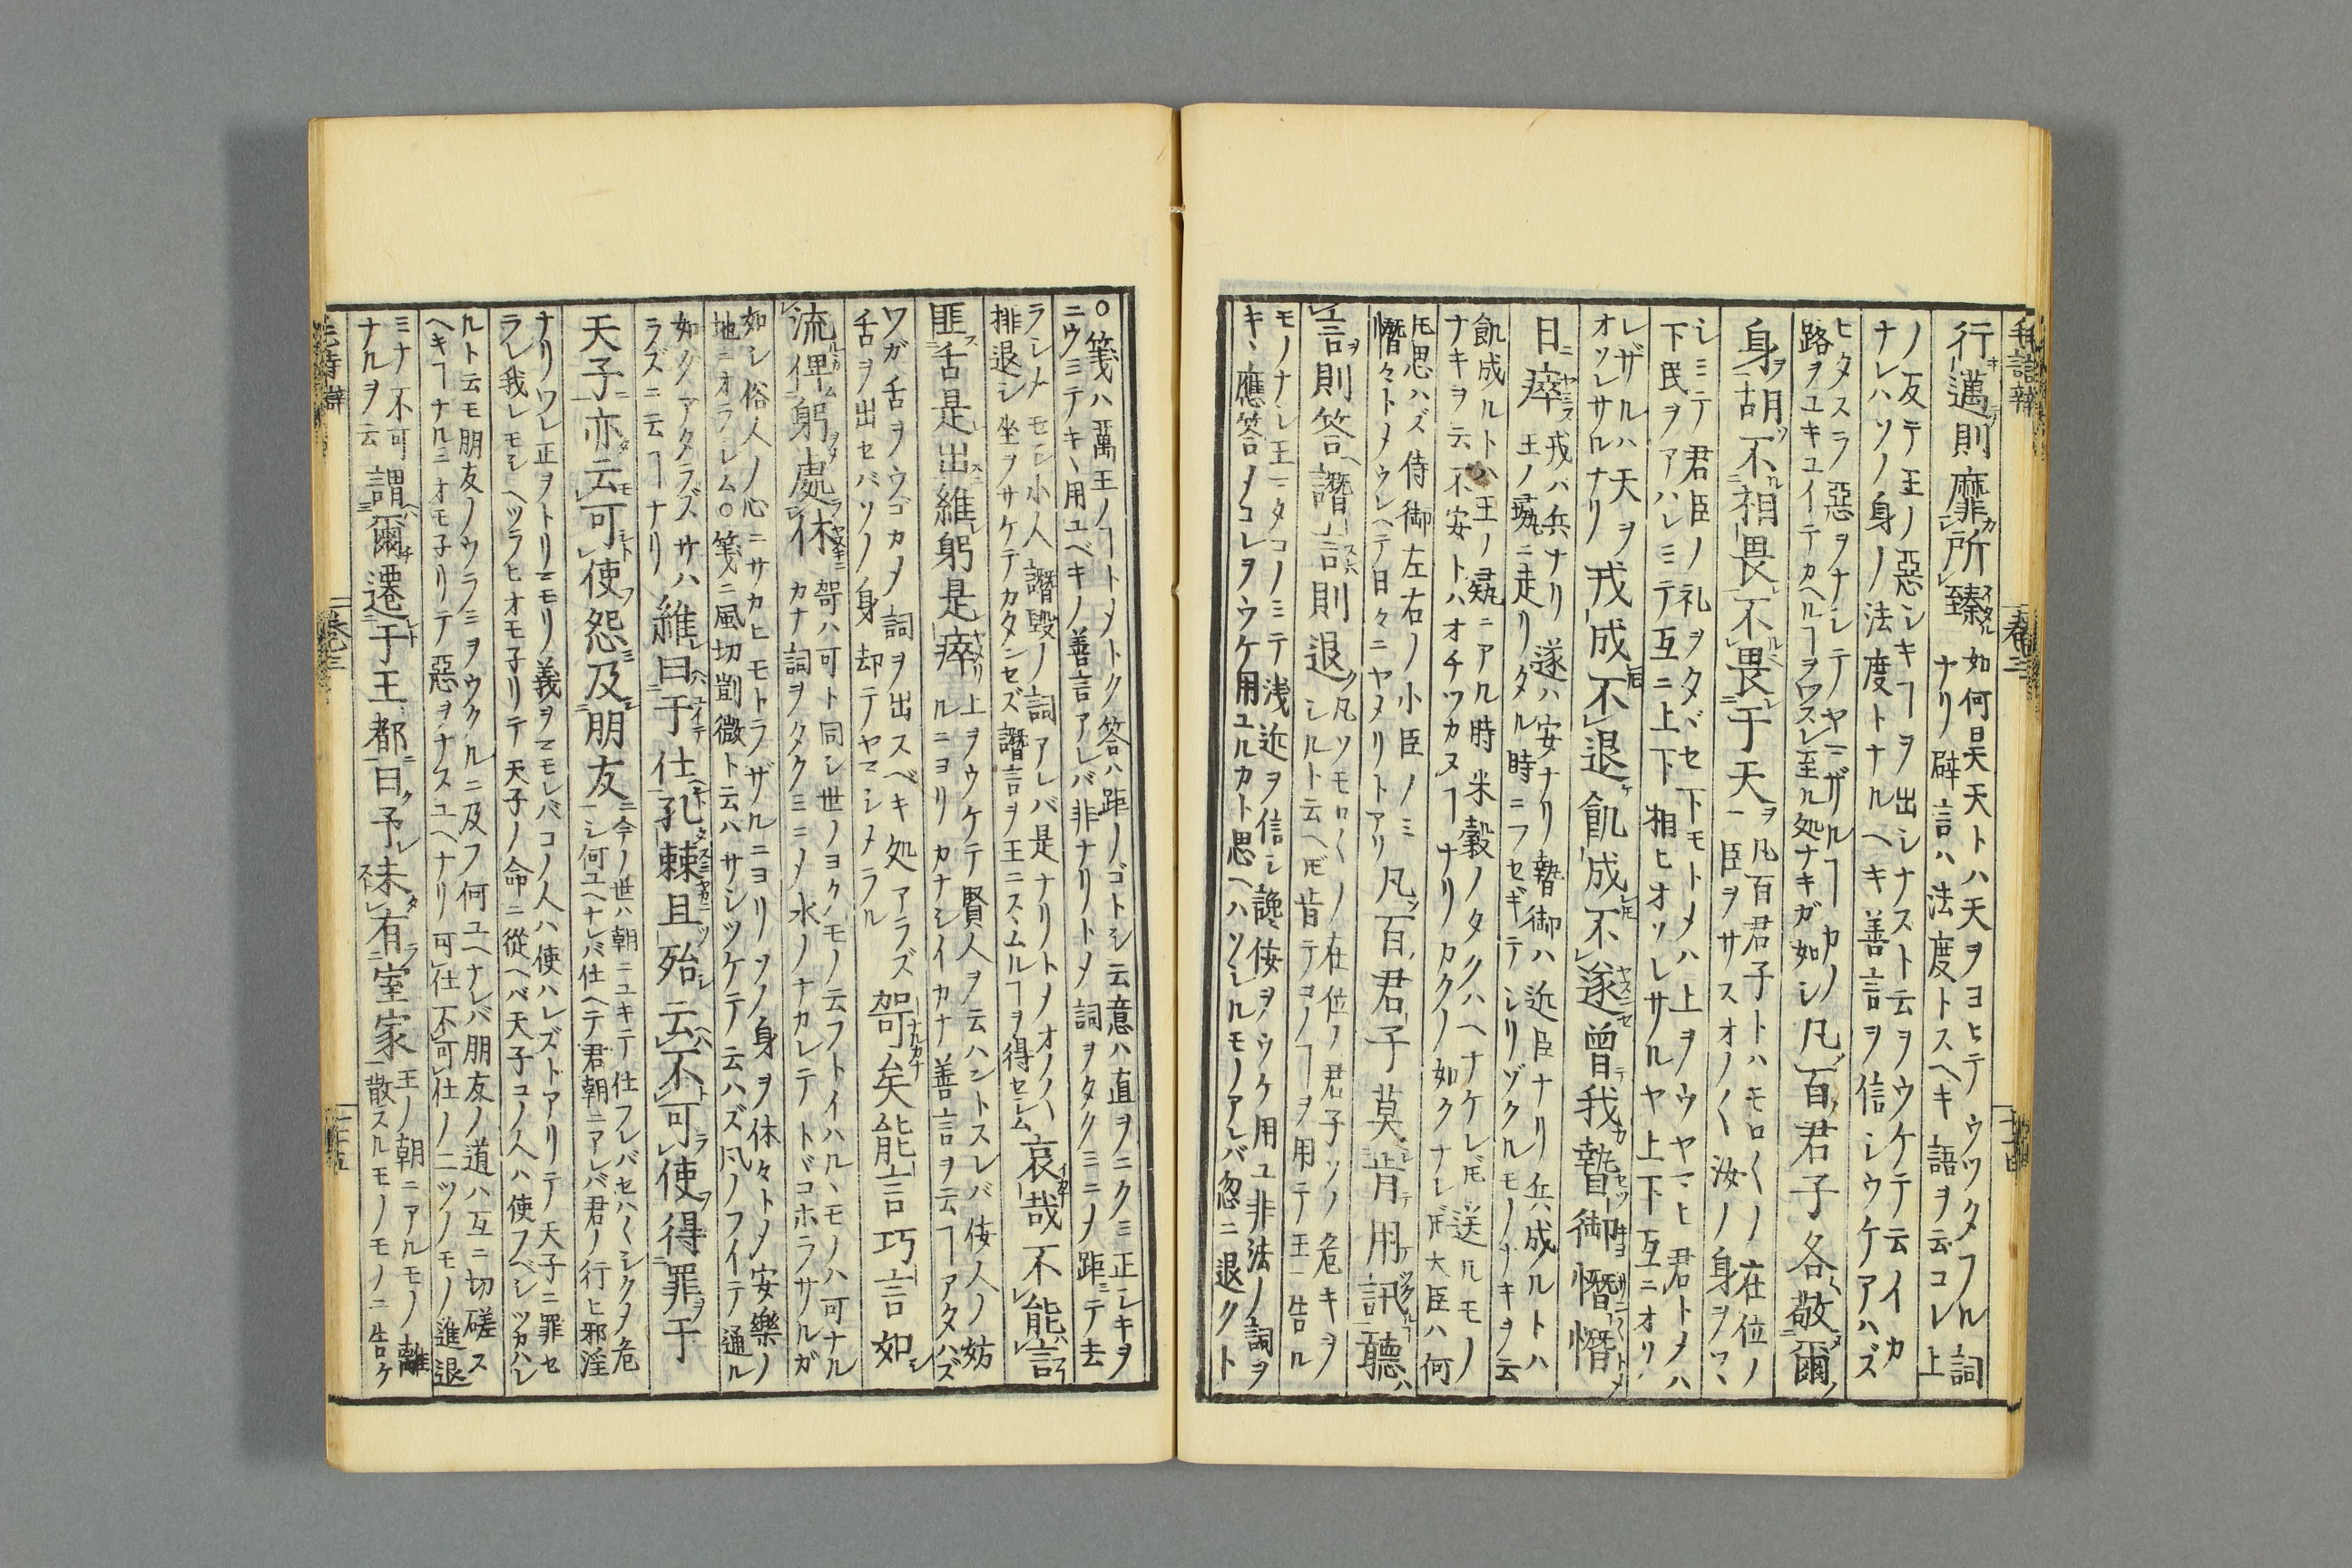 毛詩辨 卷三
行邁則靡所臻
如何昊天トハ天ヲヨヒテウツタフル詞
ナリ辟言ハ法度トスヘキ語ヲ云コレ上
ノ反テ王ノ惡シキヿヲ出シナスト云ヲウケテ云イカ
ナレハソノ身ノ法度トナルヘキ善言ヲ信シウケアハズ
ヒタスラ惡ヲナシテヤマザルヿカノ
路ヲユキユイテカヘルヿヲワスレ至ル処ナキガ如シ
凡百君子各敬爾
身胡不相畏不畏于天
凡百君子トハモロ〱ノ在位ノ
臣ヲサスオノ〱汝ノ身ヲツヽ
シミテ君臣ノ礼ヲタヾセ下モトメハ上ヲウヤマヒ君トメハ
下民ヲアハレミテ互ニ上下相ヒオソレサルヤ上下互ニオソ
レザルハ天ヲ
オソレサルナリ
戎成不退飢成不遂曾我暬御憯憯
日瘁
戎ハ兵ナリ遂ハ安ナリ暬御ハ近臣ナリ兵成ルトハ
王ノ彘ニ走リタル時ニフセギテシリゾクルモノナキヲ云
飢成ルトハ王ノ彘ニアル時米穀ノタクハヘナケレ𪜈送ルモノ
ナキヲ云不安トハオチツカヌヿナリカクノ如クナレ𪜈大臣ハ何
𪜈思ハズ侍御左右ノ小臣ノミ
憯々トメウレヘテ日々ニヤメリトアリ
凡百君子莫肯用訊聽
言則答譖言則退
凡ソモロ〱ノ在位ノ君子ソノ危キヲ
シルト云ヘ𪜈肯テヨノヿヲ用テ王ニ告ル
モノナシ王マタコノミテ浅近ヲ信シ讒佞ヲウケ用ユ非法ノ詞ヲ
キヽ應答メコレヲウケ用ユルカト思ヘハソシルモノアレバ忽ニ退クト
○箋ハ厲王ノヿトメトク答ハ距ノゴトシ云意ハ直ヲニクミ正シキヲ
ニウミテキヽ用ユベキノ善言アレバ非ナリトメ詞ヲタクミニメ距ニテ去
ラシメモシ小人譖毀ノ詞アレバ是ナリトメオノ〱
排退シ坐ヲサケテカタシセズ譖言ヲ王ニスヽムルヿヲ得セシム
哀哉不能言
匪舌是出維躬是瘁
上ヲウケテ賢人ヲ云ハントスレバ佞人ノ妨
ルニヨリカナシイカナ善言ヲ云ヿアタハズ
ワガ舌ヲウゴカメ詞ヲ出スベキ処アラズ
舌ヲ出セバソノ身却テヤマシメラル
哿矣能言巧言如
流俾躬處休
哿ハ可ト同シ世ノヨクモノ云フトイハルヽモノハ可ナル
カナ詞ヲタクミニメ水ノナカレテトヾコホラサルガ
如シ俗人ノ心ニサカヒモトラザルニヨリソノ身ヲ休々トメ安樂ノ
地ニオラシム○箋ニ風切剴微ト云ハサシツケテ云ハズ凡ノフイテ通ル
如クアタラズサハ
ラズニ云ヿナリ
維曰于仕孔棘且殆云不可使得罪于
天子亦云可使怨及朋友
今ノ世ハ朝ニユキテ仕フレバセハ〱シクメ危
シ何ユヘナレバ仕ヘテ君朝ニアレバ君ノ行ヒ邪淫
ナリワレ正ヲトリマモリ義ヲマモレバコノ人ハ使ハレズトアリテ天子ニ罪セ
ラレ我レモシヘツラヒオモ子リテ天子ノ命ニ從ヘバ天子コノ人ハ使フベシツカハレ
ルト云モ朋友ノウラミヲウクルニ及フ何ユヘナレバ朋友ノ道ハ互ニ切磋ス
ヘキヿナルニオモ子リテ惡ヲナスユヘナリ可仕不可仕ノ二ツノモノ進退
ミナ不可
ナルヲ云
謂爾遷于王都曰予未有室家
王ノ朝ニアルモノ離
散スルモノモノニ告ケ
毛詩辨 卷三